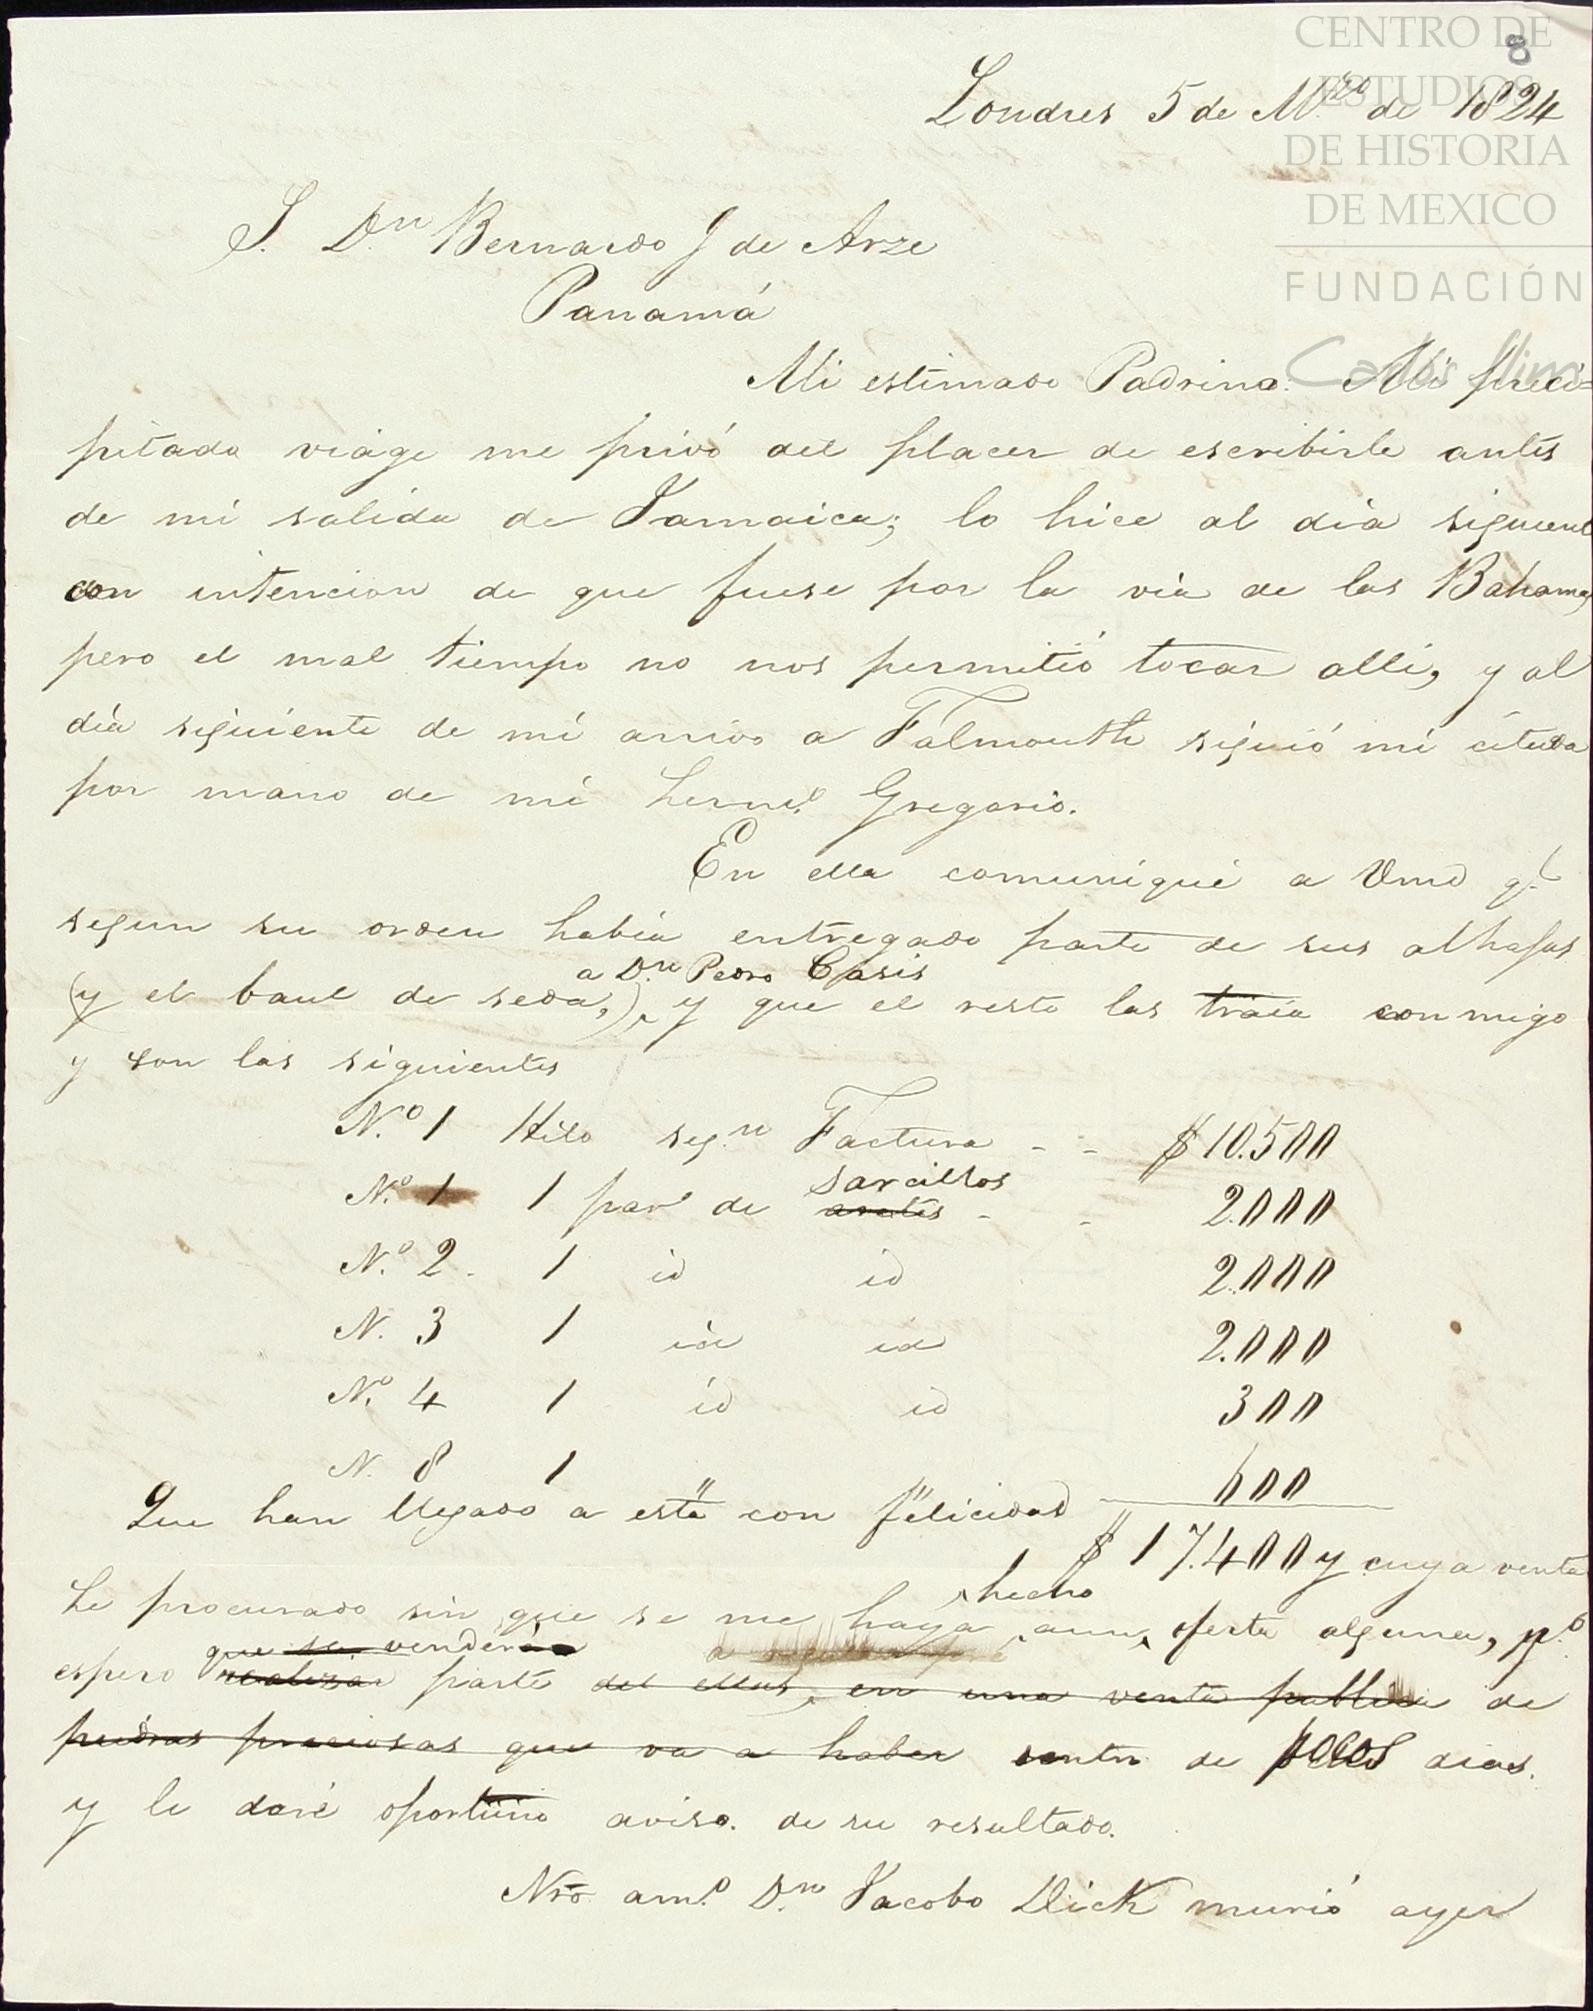 CENTRO DE
ESTUDIOS
DE HISTORIA
DE MEXICO
FUNDACIÓN
Carlos Slim
8
Londres 5 de M.zo de 1824
S. D.n Bernardo J de Arze
Panamá
Mi estimado Padrino. Mi preci=
pitado viage me privó del placer de escribirle antes
de mi salida de Jamaica; lo hice al dia siguient
con intencion de que fuese por la via de las Bahamas
pero el mal tiempo no nos permitió tocar alli, y al
dia siguiente de mi arrivo a Falmouth siguió mi citada
por mano de mi herm.o Gregorio.
En ella comuniqué a Vmd q.e
segun su orden habia entregado parte de sus alhajas
a D.n Pedro Casis
(y el baul de seda,) y que el resto las traia conmigo
y son las siguientes
N.o 1 Hilo seg.n Factura - - $ 10.500
sarcillos
N.o 1 1 par de aretes - - 2.000
N.o 2. 1 id id 2.000
N. 3 1 id id 2.000
N.o 4 1 id id 300
N. 8 1 " " 600
Que han llegado a esta con felicidad
$ 17.400 y cuya venta
hecho
he procurado sin que se me haya aun oferta alguna, p.o
que se venderia a
espero realizar parte del ellas, en una venta publica de
piedras preciosas que va a haber dentro de pocos dias.
y le daré oportuno aviso. de su resultado.
Nro am.o D.n Jacobo Dick murió ayer